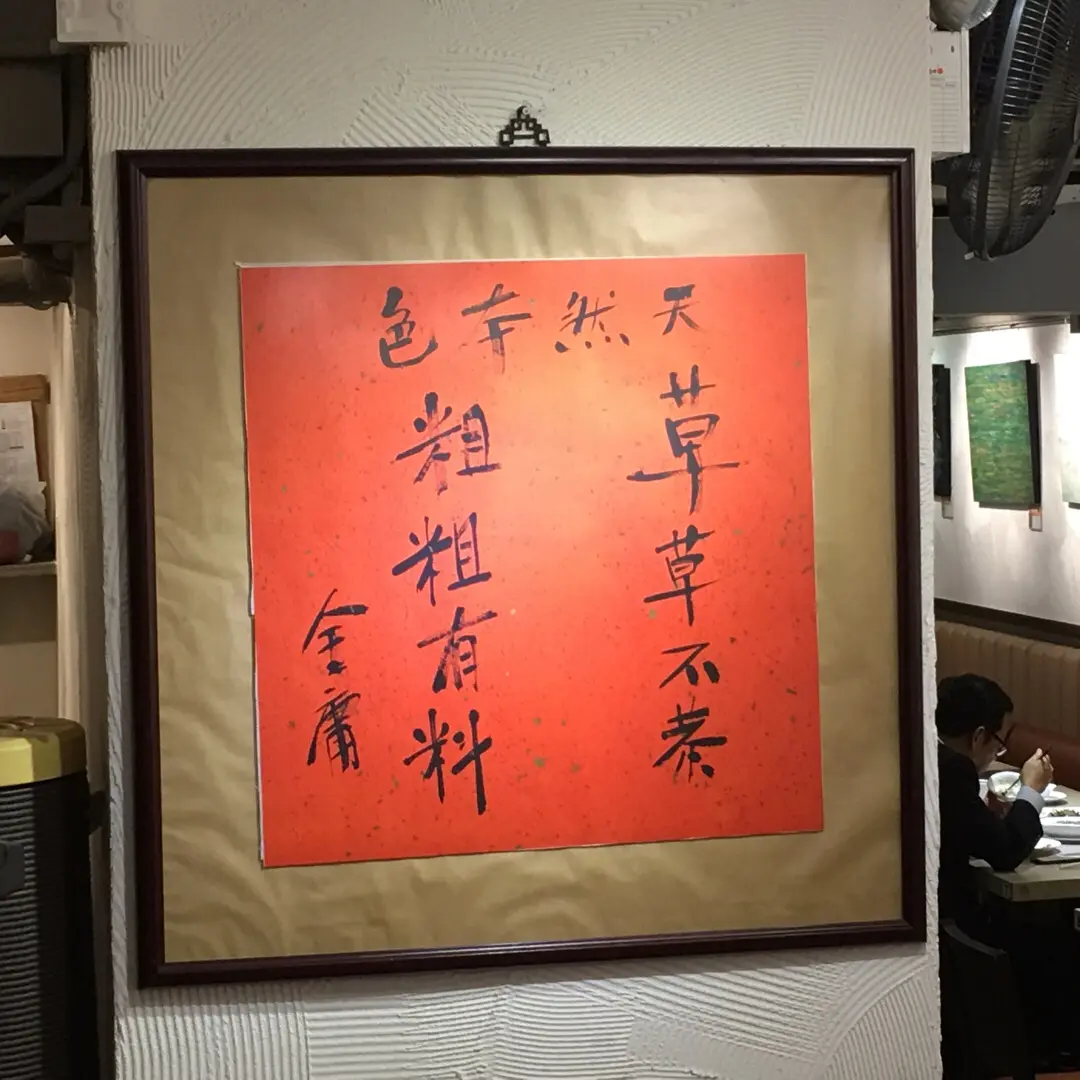 天然本色
草草不恭
粗粗有料
金庸